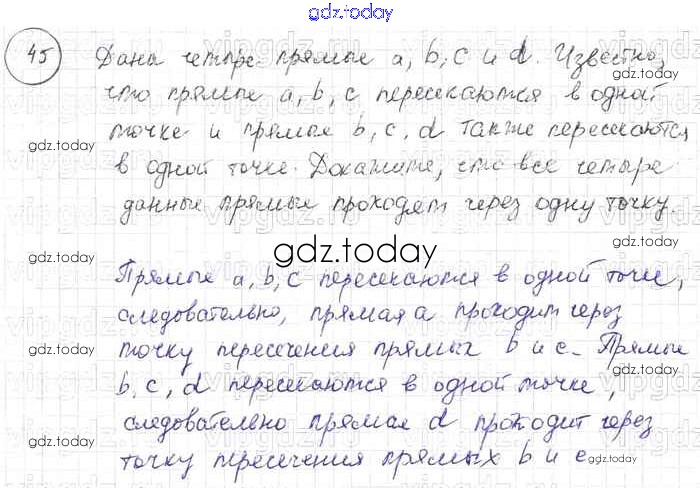 gdz.today
45 Дана четыре прямые a, b, c и d. Известно,
что прямые a, b, c пересекаются в одной
точке и прямые b, c, d также пересекаются
в одной точке. Докажите, что все четыре
данные прямые проходят через одну точку
gdz.today
Прямые a, b, c пересекаются в одной точке,
следовательно, прямая a проходит через
точку пересечения прямых b и c. Прямые
b, c, d пересекаются в одной точке,
следовательно прямая d проходит через
точку пересечения прямых b и c